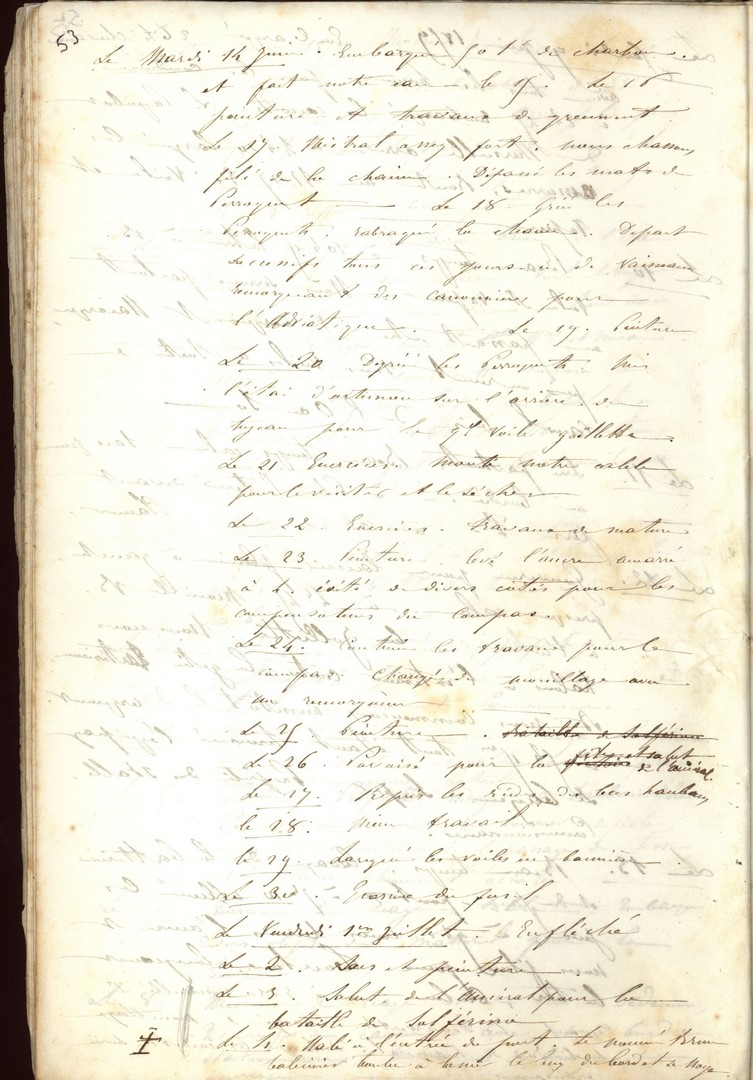 53
1859
Le Mardi 14 Juin. Embarqué 50 tx de charbon.
et fait notre eau le 15. Le 16
peinture et travaux de greement.
Le 17. Mistral assez fort. nous chassons
filé de la chaine. Dépassé les mats de
Perroquet — Le 18 Gréé les
Perroquets. rabraqué la chaine. Depart
successifs tous ces jours-ci de vaisseaux
remorquant des canonnières pour
l'Adriatique. Le 19. Peinture
Le 20 Dégréé les Perroquets. mis
l'étai d'artimon sur l'arrière du
tuyeau pour le gd voile goëlette.
Le 21 Exercices. monté notre cable
pour le visiter et le sécher
Le 22. Exercices. travaux de mature
Le 23. Peinture. levé l'ancre amarré
à 4. évité de divers cotés pour les
compensateurs du compas.
Le 24. Continué les travaux pour le
compas. Changé de mouillage avec
un remorqueur
Le 25 Peinture. bataille de Solférino
Le 26. Pavoisé pour la fête et salut
de l'amiral.
Le 27. Repris les rides des bas haubans
le 28. même travail
le 29. Largué les voiles en bannière
Le 30. Exercice du fusil
Le Vendredi 1er Juillet — Enfléché
Le 2. Sacs et peinture
Le 3. Salut de l'amiral pour la
bataille de Solférino
Le 4. Halé à l'entrée du port. Le nommé Brun
baleinier tombe à la mer le long du bord et se noye.